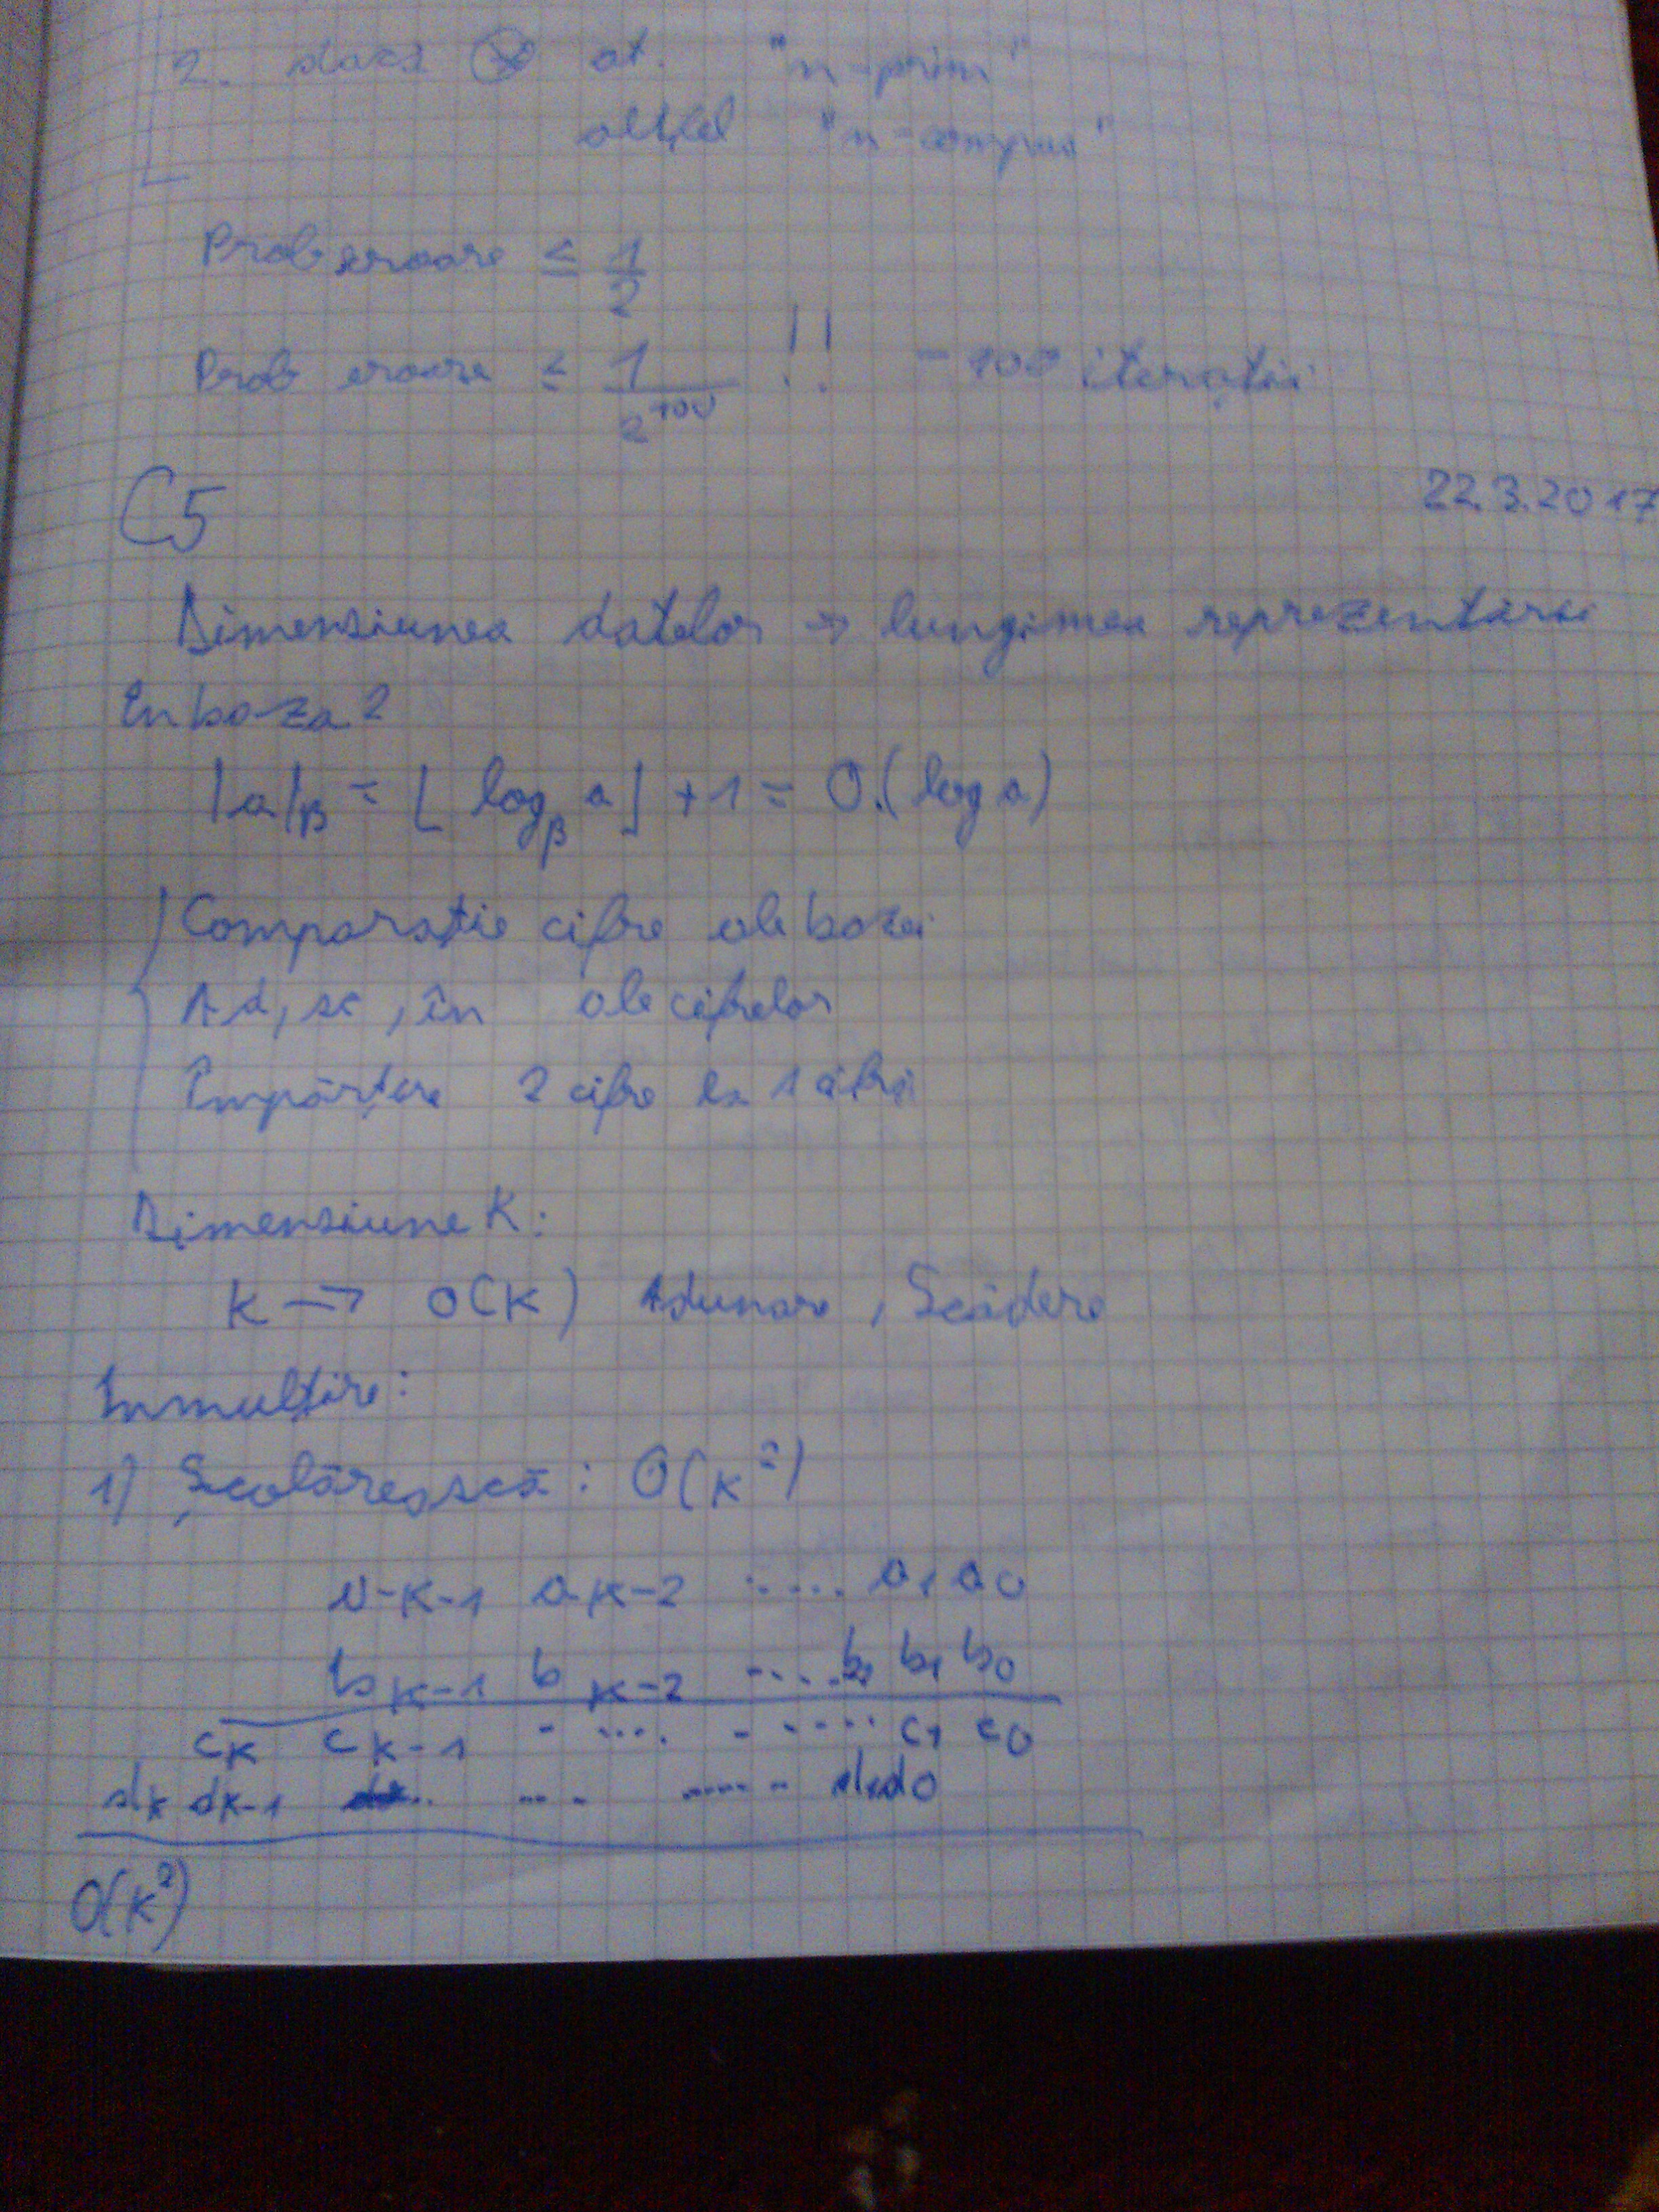 2. dacă (*) at. "n-prim"
altfel "n-compus"
Prob eroare ≤ 1/2
Prob eroare ≤ 1/2^100 !! - 100 iterații
C5 22.3.2017
Dimensiunea datelor → lungimea reprezentării
În baza 2
|a|β = ⌊ logβ a⌋ + 1 = O(log a)
Comparație cifre ale bazei
Ad, sc, în ale cifrelor
Împărțire 2 cifre la 1 cifră
Dimensiune K:
k → O(K) Adunare, Scădere
Inmulțire:
1) Școlărească: O(K²)
aK-1 aK-2 ..... a1 a0
bK-1 bK-2 ..... b2 b1 b0
cK cK-1 - .... - ..... c1 c0
dK dK-1 ... ... ...... d1 d0
O(K²)